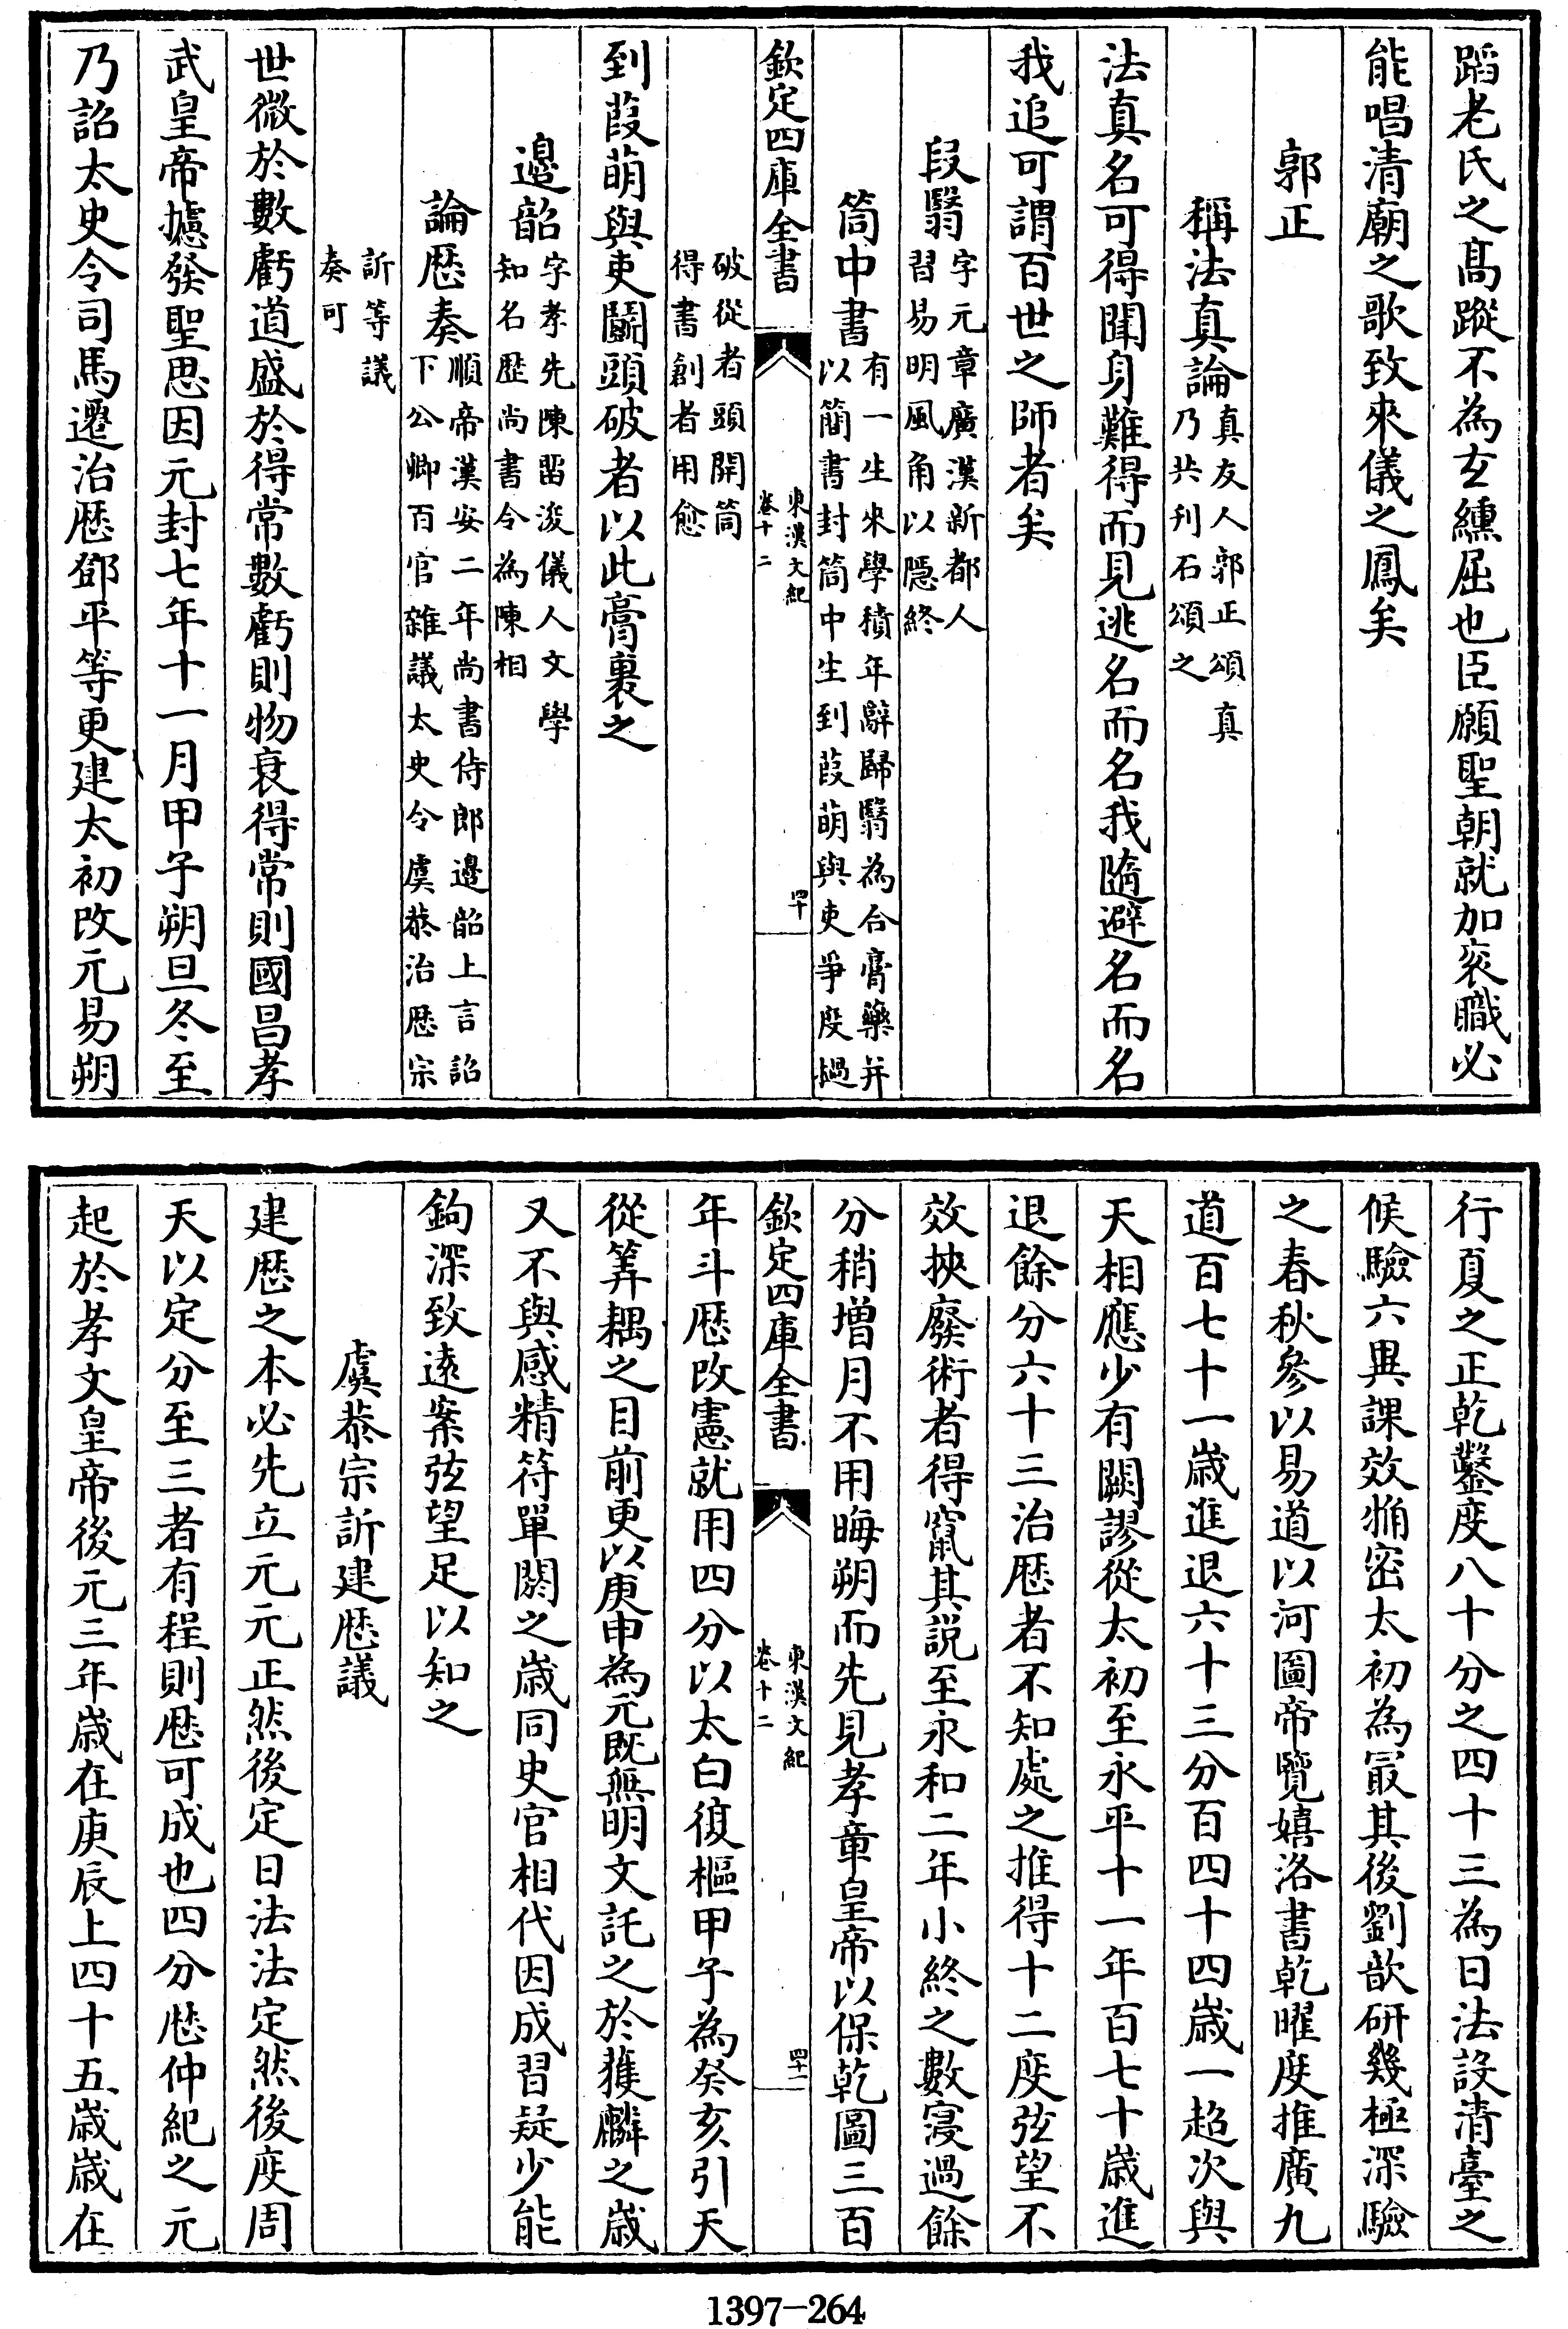 蹈老氏之髙蹤不為𤣥纁屈也臣願聖朝就加衮職必
能唱清廟之歌致來儀之鳳矣
郭正
稱法真論真友人郭正頌真
乃共刋石頌之
法真名可得聞身難得而見逃名而名我隨避名而名
我追可謂百世之師者矣
段翳字元章廣漢新都人
習易明風角以隠終
筒中書有一生來學積年辭歸翳為合膏藥并
以簡書封筒中生到葭萌與吏爭度撾
欽定四庫全書
東漢文紀
卷十二
四十
破從者頭開筒
得書創者用愈
到葭萌與吏鬬頭破者以此膏裹之
邉韶字孝先陳留浚儀人文學
知名歴尚書令為陳相
論厯奏順帝漢安二年尚書侍郎邉韶上言詔
下公卿百官雜議太史令虞恭治厯宗
訢等議
奏可
世微於數虧道盛於得常數虧則物衰得常則國昌孝
武皇帝攄發聖思因元封七年十一月甲子朔旦冬至
乃詔太史令司馬遷治厯鄧平等更建太初改元易朔
行夏之正乾鑿度八十分之四十三為日法設清臺之
候驗六異課效觕密太初為最其後劉歆研幾極深驗
之春秋參以易道以河圖帝覽嬉洛書乾曜度推廣九
道百七十一歳進退六十三分百四十四歳一超次與
天相應少有闕謬從太初至永平十一年百七十歳進
退餘分六十三治厯者不知處之推得十二度弦望不
效挾廢術者得竄其説至永和二年小終之數寖過餘
分稍增月不用晦朔而先見孝章皇帝以保乾圖三百
欽定四庫全書
東漢文紀
卷十二
四十一
年斗厯改憲就用四分以太白復樞甲子為癸亥引天
從筭耦之目前更以庚申為元既無明文託之於獲麟之歳
又不與感精符單閼之歳同史官相代因成習疑少能
鉤深致逺案弦望足以知之
虞恭宗訢建厯議
建厯之本必先立元元正然後定日法法定然後度周
天以定分至三者有程則厯可成也四分厯仲紀之元
起於孝文皇帝後元三年歳在庚辰上四十五歳歳在
1397-264